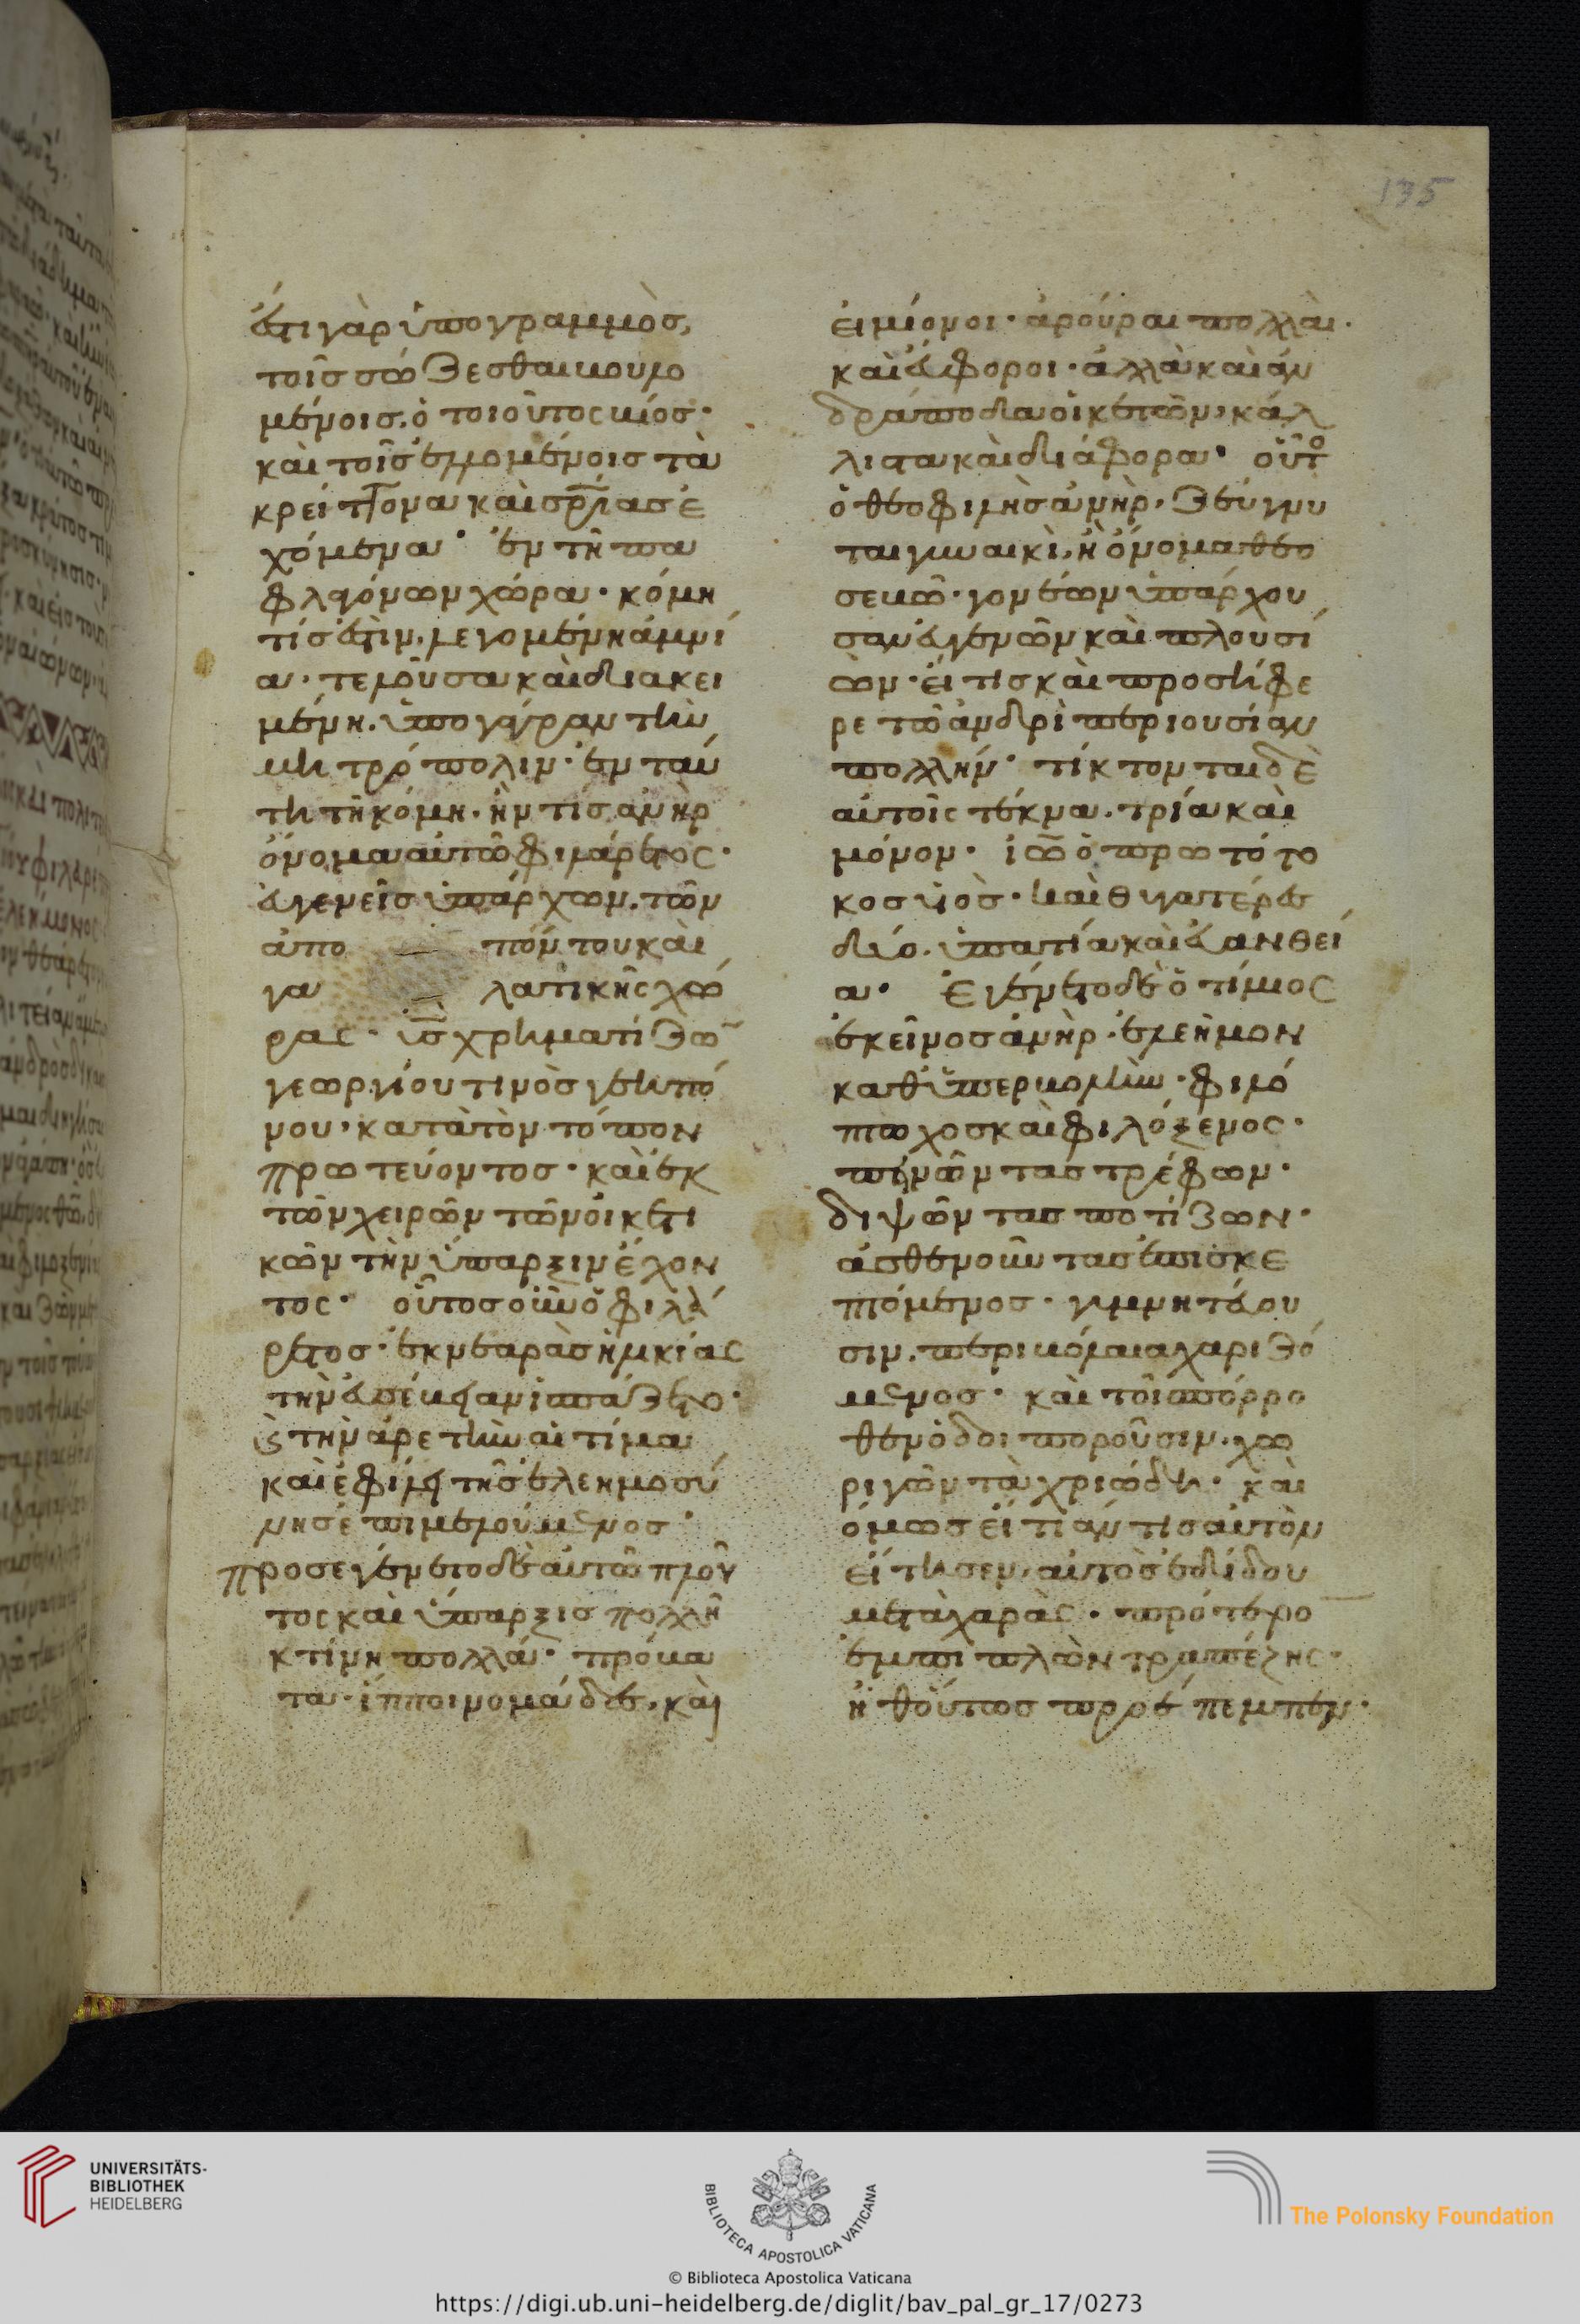 ἔστι γὰρ ὑπογραμμὸς,
τοῖς σώζεσθαι βουλο
μένοις. ὁ τοιοῦτος βίος·
καὶ τοῖς ἐλλομένοις τὰ
κρείττονα καὶ σ̅ρ̅ί̅ας ἐ
χόμενα· ἐν τῆ πα
φλαγόνων χώρα· κόμη
τίς ἐστὶν. λεγομένη ἀμνί
α· τελοῦσα καὶ διακει
μένη. ὑπο γάγραν τὴν
μητρόπολιν· ἐν ταύ
τη τῆ κόμη. ἦν τίς ἀνὴρ
ὄνομα αὐτῶ φιλάρετος·
εὐγενεῖς ὑπάρχων. τῶν
ἀπο πόντου καὶ
γα λατικῆς χώ
ρας· υ̅ἱ̅ς̅ χρηματίζω̅
γεωργίου τινὸς γειπό
νου· κατὰ τὸν τόπον
πρωτεύοντος· καὶ ἐκ
τῶν χειρῶν τῶν οἰκετι
κῶν τὴν ὕπαρξιν ἔχον
τος· οὗτος οὖν ὁ φιλά
ρετος· ἐκ νεαρᾶς ἡλικίας
τὴν
τὴν ἀρετὴν
καὶ τῆς ἐλεημοσύ
νης ἐπιμελούμενος·
προσεγένετο δὲ αὐτῶ πλοῦ
τος καὶ ὕπαρξις πολλῆ
κτίνη πολλά· πρόβα
τα· ἵπποι νομάδες, καὶ
εἱμίονοι· ἀρούραι πολλαι·
καὶ εὔφοροι· ἀλλὰ καὶ ἀν
δράποδα οἰκετῶν, κάλ
λιστα καὶ διάφορα· οὗτο
ὁ θεοφιλὴς ἀνὴρ, ζεύγνυ
ται γυναικὶ, ἧ ὄνομα θεο
σεβῶ· γονέων ὑπάρχου
σα εὐγενῶν καὶ πλουσί
ων· εἴ τις καὶ προσήφε
ρε τῶ ἀνδρὶ περιουσίαν
πολλήν· τίκτονται δὲ
αὐτοῖς τέκνα. τρία καὶ
μόνον· ἰω̅ ὁ πρωτότο
κος υἱὸς· καὶ θυγατέρες
δύο. ὑπατία καὶ εὐανθεί
α· Ἐγένετο δὲ ὁ τίμιος
ἐκεῖνος ἀνὴρ· ἐλεήμον
καθ ὑπερβολὴν· φιλό
πτωχος καὶ φιλόξενος·
πηνῶντας τρέφων·
διψῶντας ποτίζων·
ἀσθενοῦντας ἐπισκε
πτόμενος· γυμνητεύου
σιν. περιβόλαια χαριζό
μενος· καὶ τοῖ πόρρο
θεν ὁδοιποροῦσιν. χω
ριγῶν τὰ χριώδη· καὶ
ὅμως εἴ τι ἄν τις αὐτὸν
εἴτησεν, αὐτὸς ἐδίδου
μετὰ χαρᾶς· πρότερο
ἐμπιπλῶν τραπέζης·
ἢ θ οὕτως προέπεμπεν·
135
UNIVERSITÄTS-
BIBLIOTHEK
HEIDELBERG
BIBLIOTECA APOSTOLICA VATICANA
The Polonsky Foundation
© Biblioteca Apostolica Vaticana
https://digi.ub.uni-heidelberg.de/diglit/bav_pal_gr_17/0273